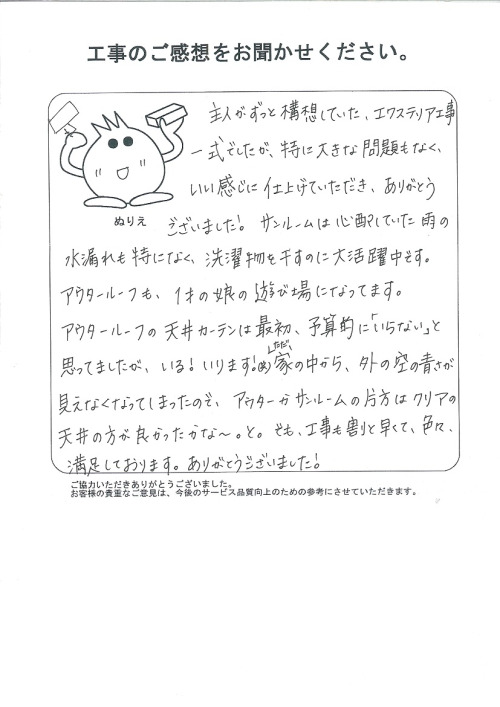 工事のご感想をお聞かせください。
主人がずっと構想していた、エクステリア工事
一式でしたが、特に大きな問題もなく、
いい感じに仕上げていただき、ありがとう
ぬりえ
ございました！サンルームは心配していた雨の
水漏れも特になく、洗濯物を干すのに大活躍中です。
アウタールーフも、1才の娘の遊び場になってます。
アウタールーフの天井カーテンは最初、予算的に「いらない」と
思ってましたが、いる！いります！(笑)ただ、家の中から、外の空の青さが
見えなくなってしまったので、アウターかサンルームの片方はクリアの
天井の方が良かったかな〜。と。でも、工事も割と早くて、色々、
満足しております。ありがとうございました！
ご協力いただきありがとうございました。
お客様の貴重なご意見は、今後のサービス品質向上のための参考にさせていただきます。